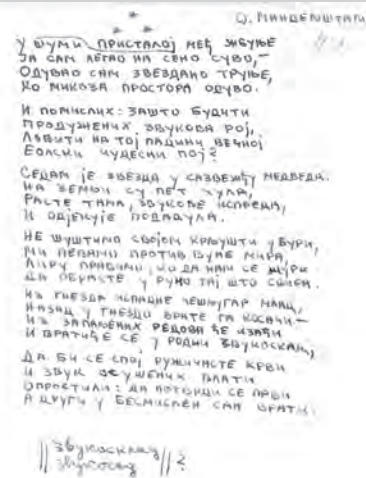 О. Мандељштам
У шуми присталој међ жбуње
Ја сам легао на сено суво,—
Одувао сам звездано труње,
Ко никоза простора одуво.
И помислих: зашто будити
Продужених звукова рој,
Ловити на тој падини вечној
Еолски чудесни пој?
Седам је звезда у сазвежђу медведа.
На земљи су пет чула,
Расте тама, звукове испреда,
И одјекује
Не шуштимо својом крљушти у бури,
Ми певамо против вуне мира,
Лиру правимо, ко да нам се жури
Да обрасте у руно тај што
Из гнезда испадне чешљугар млад,
Назад у гнездо врате га косачи—
Из запаљених редова ће изаћи
И вратиће се у родни звукосклад,
Да би се спој ружичасте крви
И звук осушених влати
Опростили: да потврди се први
А други у бесмислен сан врати.
звукосклад
звукосад ?